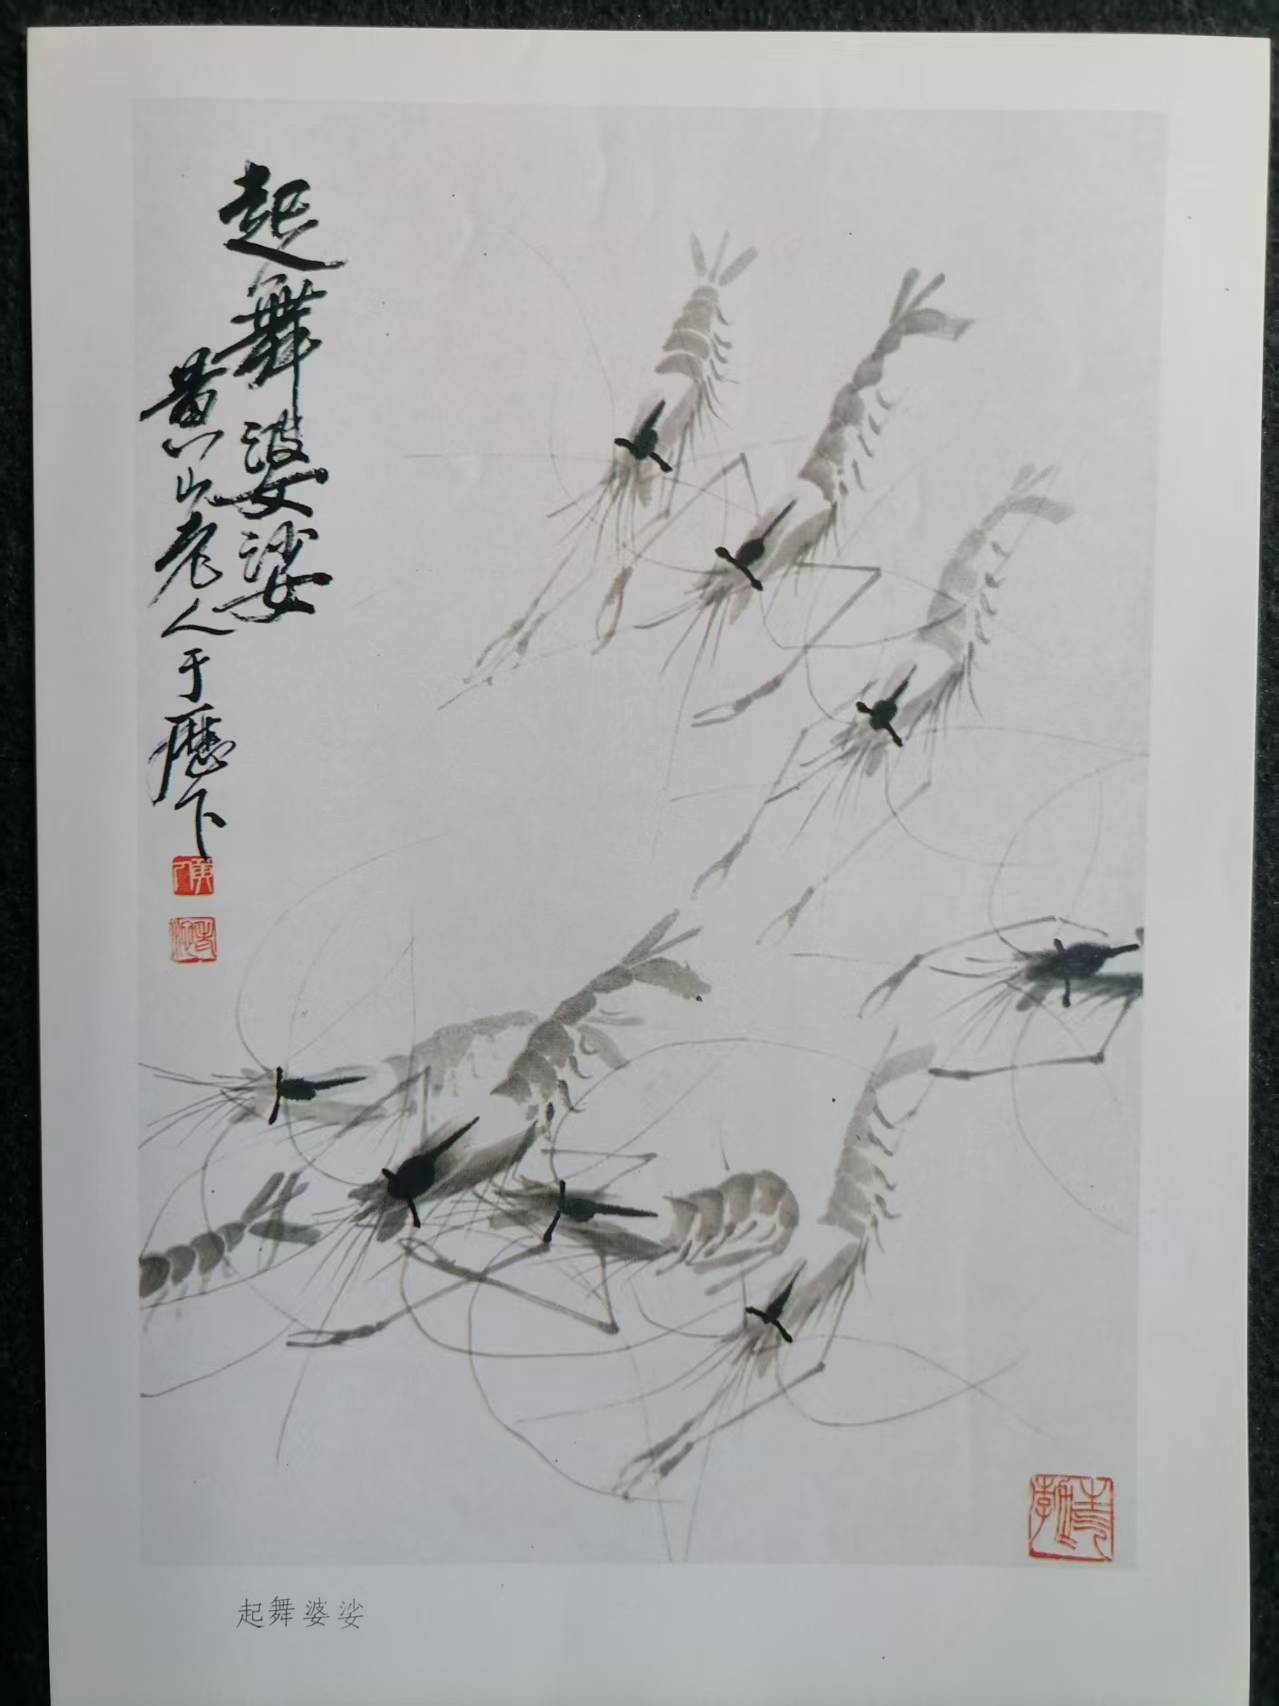 起舞婆娑
黄山老人于歷下
起舞婆娑